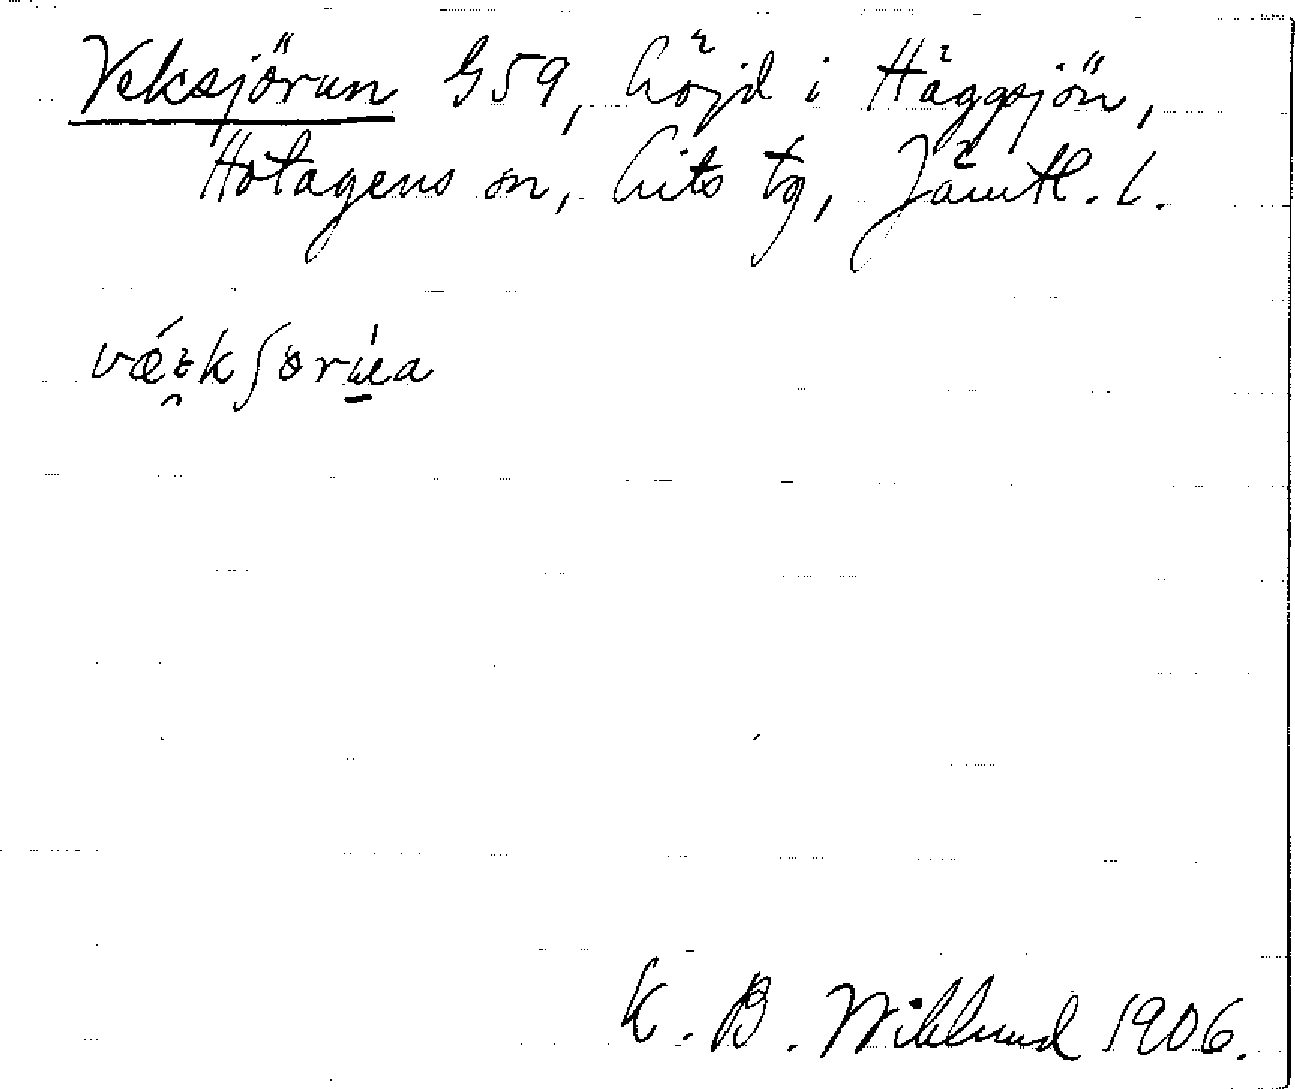 Veksjörun G59, höjd i Häggsjön,
Hotagens sn, Lits tg, Jämtl. l.
K. B. Wiklund 1906.